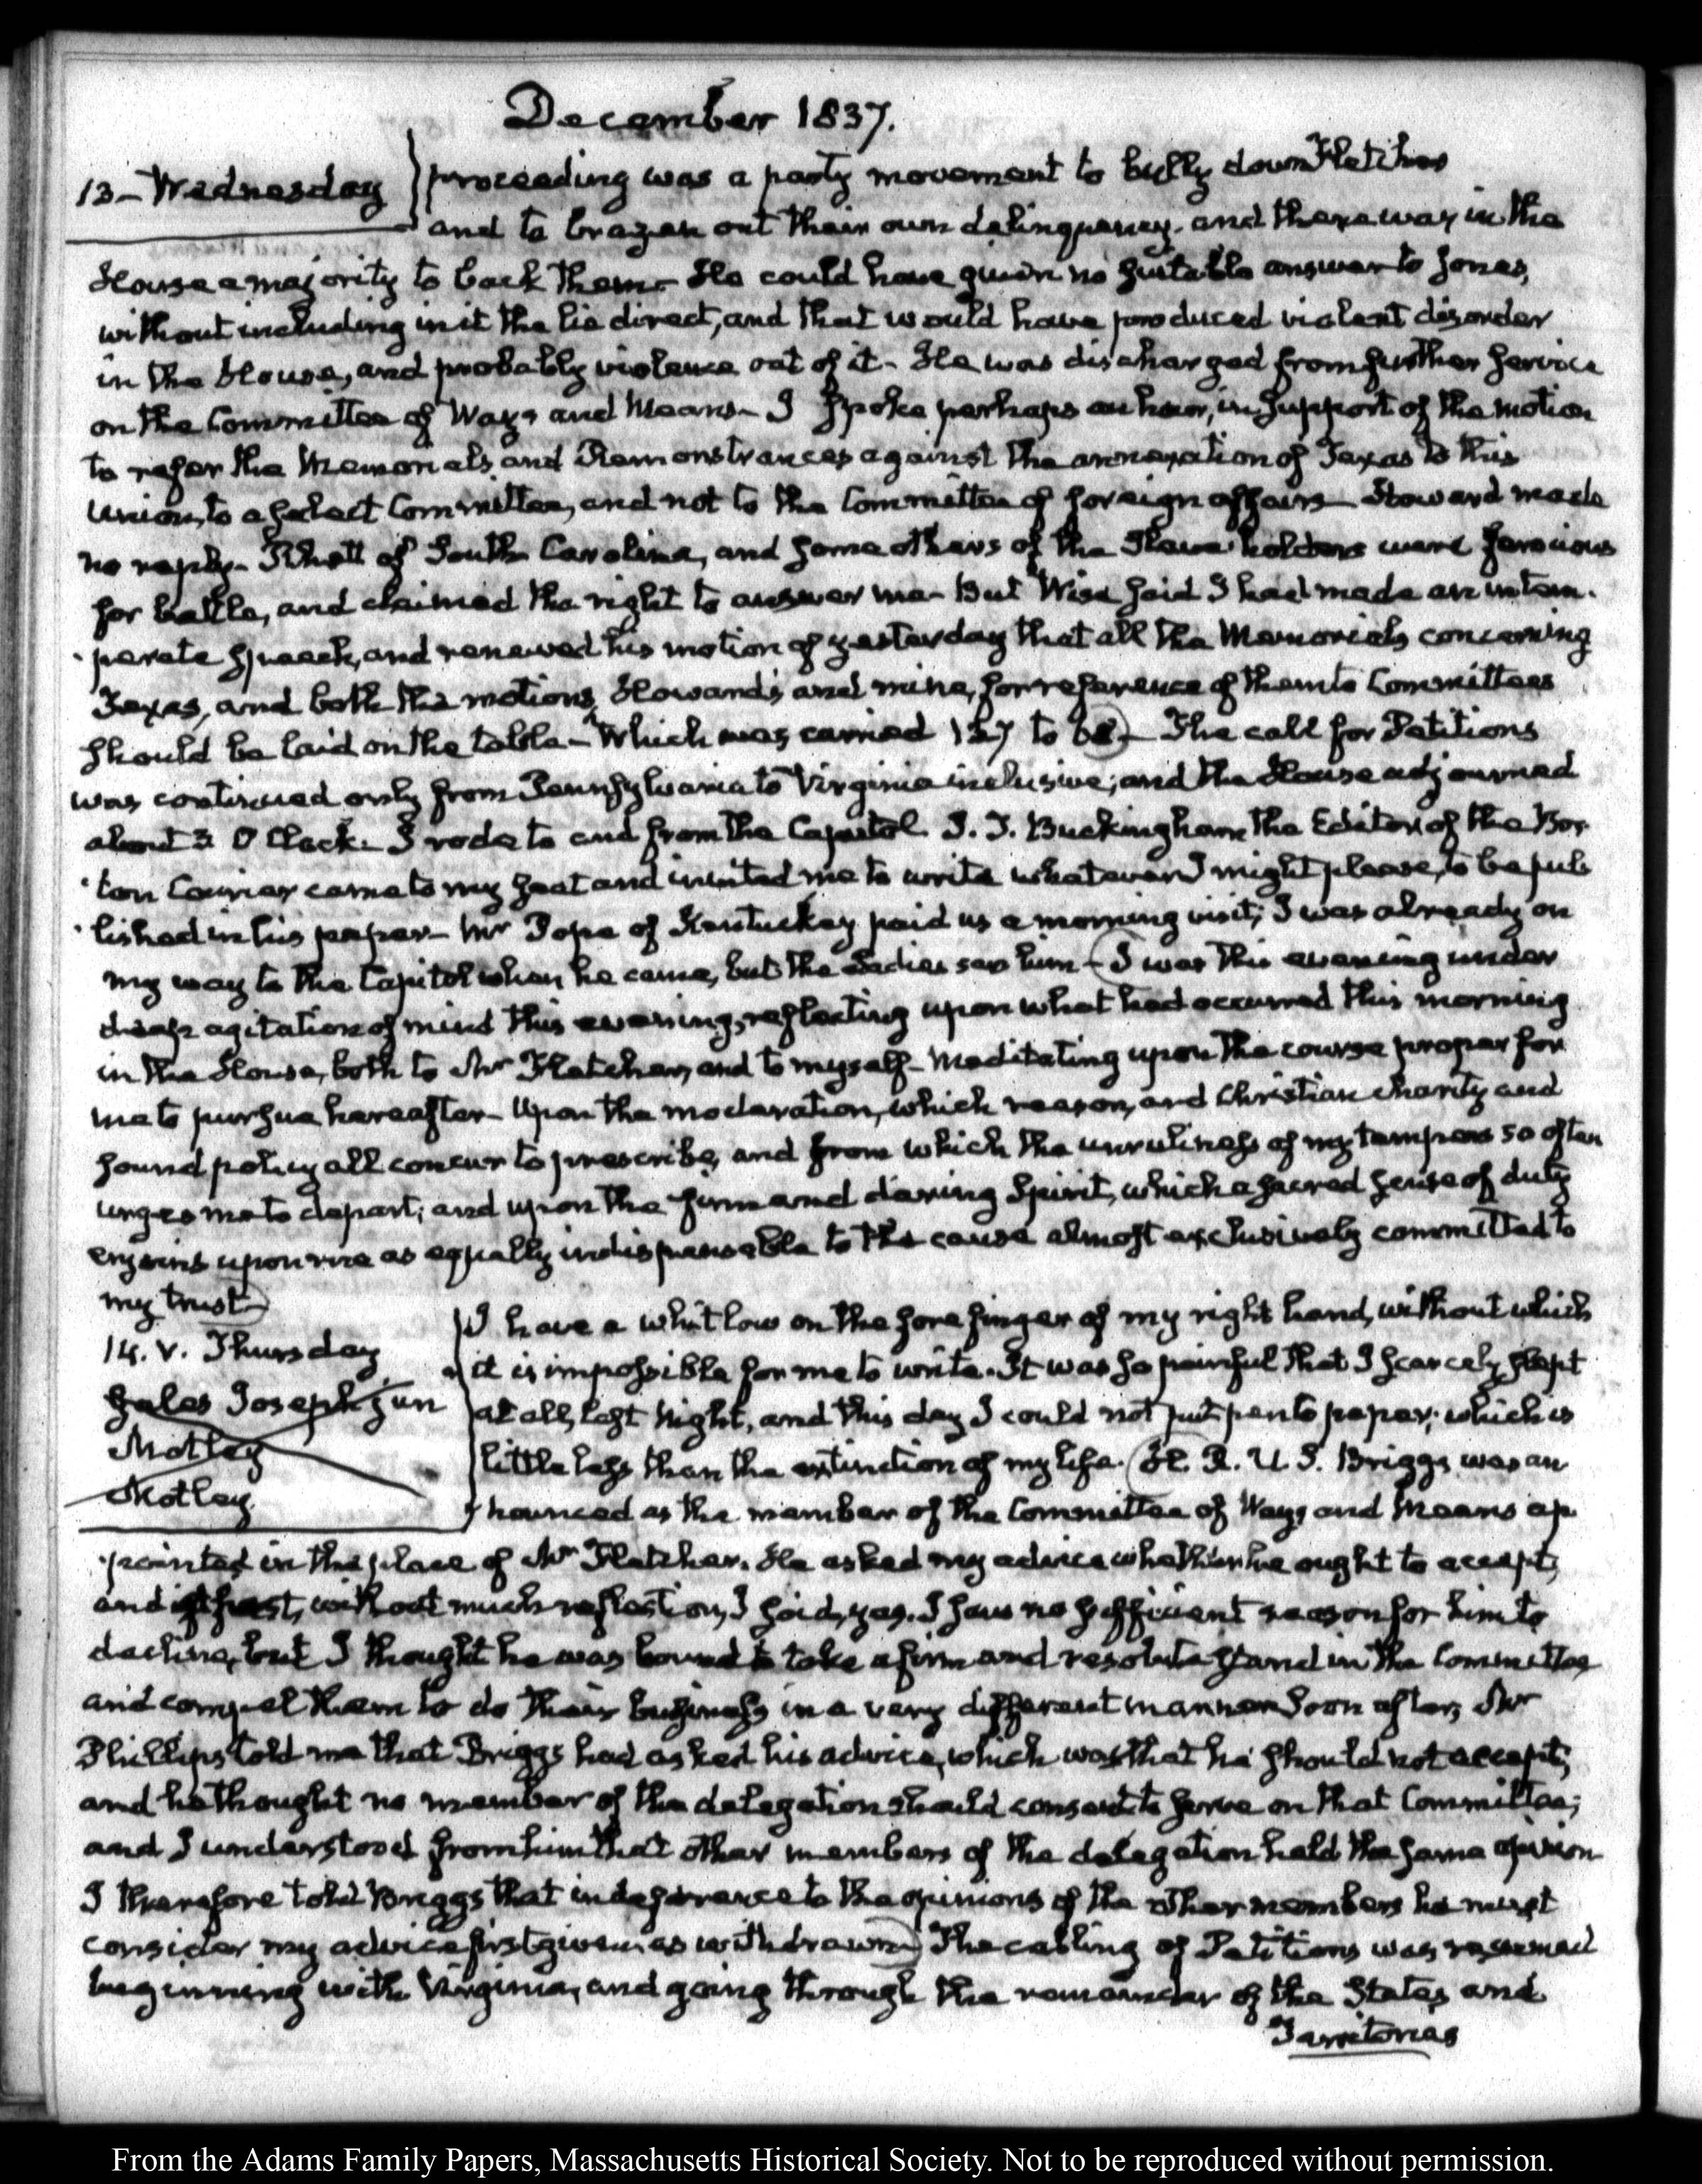 December 1837.
13 - Wednesday
proceeding was a party movement to bully down Fletcher
and to brazen out their own delinquency. and there was in the
House a majority to back them - He could have given no suitable answer to Jones,
without including in it the lie direct, and that would have produced violent disorder
in the House, and probably violence out of it - He was discharged from further service
on the Committee of Ways and Means - I spoke perhaps an hour, in support of the motion
to refer the Memorials and Remonstrances against the annexation of Texas to this
Union, to a select Committee, and not to the Committee of foreign affairs - Howard made
no reply - Rhett of South Carolina, and some others of the Slave-holders were ferocious
for battle, and claimed the right to answer me - But Wise said I had made an intem-
perate speech, and renewed his motion of yesterday that all the Memorials concerning
Texas, and both the motions, Howard's and mine, for reference of them to Committees
should be laid on the table - Which was carried 127 to 68 - The call for Petitions
was continued only from Pennsylvania to Virginia inclusive; and the House adjourned
about 3 O'Clock - I rode to and from the Capitol. J. T. Buckingham the Editor of the Bos-
ton Courier came to my seat and invited me to write whatever I might please, to be pub-
lished in his paper - Mr Pope of Kentuckey paid us a morning visit; I was already on
my way to the Capitol when he came, but the Ladies saw him - (I was this evening under
deep agitation of mind this evening, reflecting upon what had occurred this morning
in the House, both to Mr Fletcher, and to myself - Meditating upon the course proper for
me to pursue hereafter - Upon the moderation, which reason, and Christian charity and
sound policy all concur to prescribe, and from which the unruliness of my temper so often
urges me to depart; and upon the firm and daring Spirit, which a sacred sense of duty
enjoins upon me as equally indispensable to the cause almost exclusively committed to
my trust)
14. V. Thursday
Gales Joseph jun
Motley
Motley
I have a whitlow on the fore finger of my right hand, without which
it is impossible for me to write. It was so painful that I scarcely slept
at all, last Night, and this day I could not put pen to paper; which is
little less than the extinction of my life. (H. R. U. S. Briggs was an-
nounced as the member of the Committee of Ways and Means ap-
pointed in the place of Mr Fletcher. He asked my advice whether he ought to accept,
and at first, without much reflection, I said, yes. I saw no sufficient reason for him to
decline, but I thought he was bound to take a firm and resolute stand in the Committee
and compel them to do their business in a very different manner Soon after, Mr
Phillips told me that Briggs had asked his advice, which was that he should not accept;
and he thought no member of the delegation should consent to serve on that Committee;
and I understood from him that other members of the delegation held the same opinion
I therefore told Briggs that in deference to the opinions of the other members he must
consider my advice first given as withdrawn) The calling of Petitions was resumed
beginning with Virginia, and going through the remainder of the States and
Territories
From the Adams Family Papers, Massachusetts Historical Society. Not to be reproduced without permission.